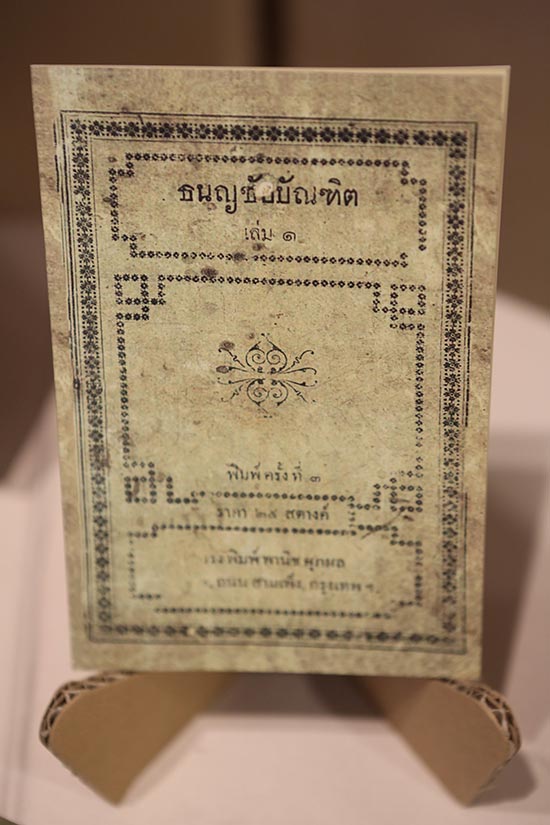 ธนญชัยบัณฑิต
เล่ม ๑
พิมพ์ ครั้ง ที่ ๓
ราคา ๒๕ สตางค์
โรง พิมพ์ พานิช ศุภผล
ถนน สามเพ็ง, กรุงเทพ ฯ